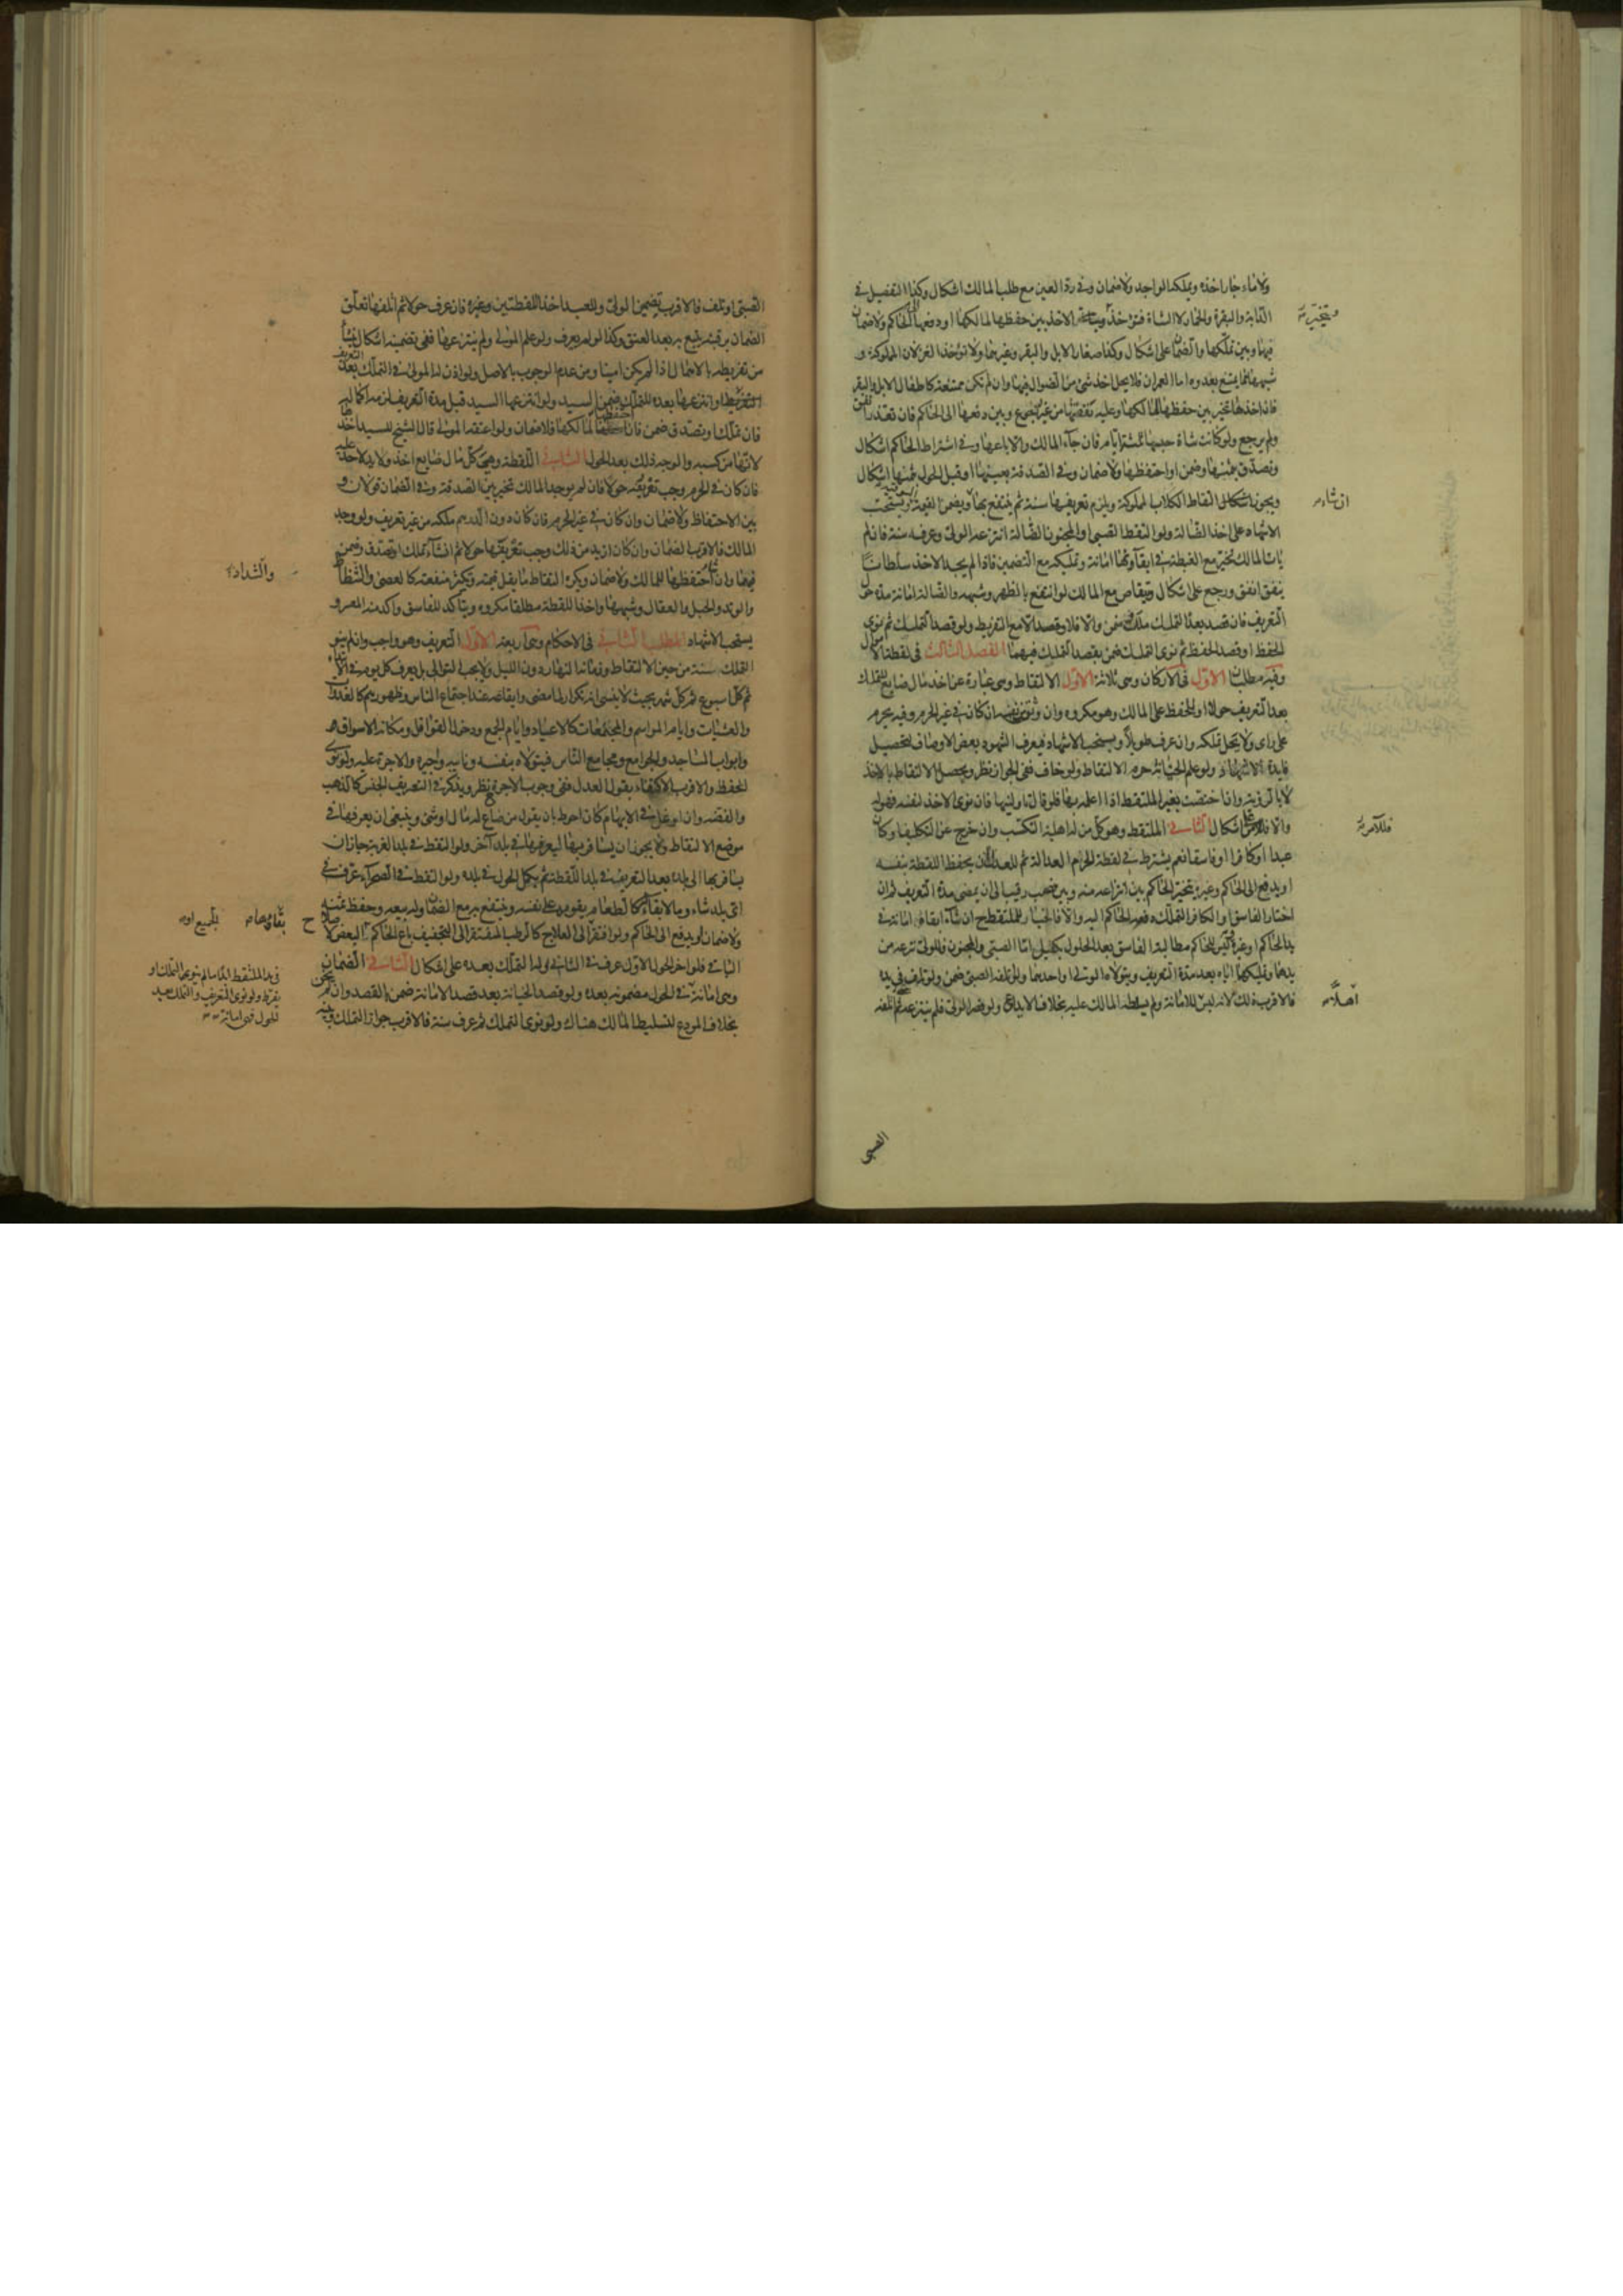 ولا ماء جاز اخذه ويملكه الواجد ولا ضمان وفي رد العين مع طلب المالك اشكال وكذا التفصيل في
الدابة والبقرة والحمار لا الشاة فتؤخذ الاخذ بين حفظها لمالكها او دفعها الى الحاكم ولا ضمان
فيهما وبين تملكها والضمان على اشكال وكذا صغار الابل والبقر وغيرهما ولا تؤخذ الغزلان المملوكة و
شبهها مما يمتنع بعدوه اما العمران فلا يحل اخذ شئ من الضوال فيها وان لم تكن ممتنعة كاطفال الابل والبقر
فان اخذها تخير بين حفظها لمالكها وعليه نفقتها من غير رجوع وبين دفعها الى الحاكم فان تعذر انفق
ولم يرجع ولو كانت شاة حبسها ثلثة ايام فان جاء المالك والا باعها وفي اشتراط الحاكم اشكال
وتصدق بثمنها وضمن او احتفظها ولا ضمان وفي الصدقة بعينها او قبل الحول بثمنها اشكال
ويجوز التقاط الكلاب المملوكة ويلزم تعريفها سنة ثم ينتفع بها ويضمن القيمة ويستحب
الاشهاد على اخذ الضالة ولو التقط الصبي او المجنون الضالة انتزعه الولي وعرفه سنة فان لم
يات المالك تخير مع الغبطة في ابقائها امانة وتمليكه مع التضمين فاذا لم يجد الاخذ سلطانا
ينفق انفق ورجع على اشكال ويتقاص مع المالك لو انتفع بالظهر وشبهه والضالة امانة مدة حول
التعريف فان قصد بعده التملك ملك وضمن والا فلا وقصد الامع التفريط ولو قصد التملك ثم نوى
الحفظ او قصد الحفظ ثم نوى التملك ضمن بقصد التملك فيهما الفصل الثالث في لقطة الاموال
وفيه مطلبان الاول في الاركان وهي ثلاثة الاول الالتقاط وهي عبارة عن اخذ مال ضايع للتملك
بعد التعريف حولا او للحفظ على المالك وهو مكروه وان وثق بنفسه ان كان في غير الحرم وفيه يحرم
على راى ولا يحل تملكه وان عرف طويلا ويستحب الاشهاد فيعرف الشهود بعض الاوصاف لتحصيل
فايدة الاشهاد ولو علم الخيانة حرم الالتقاط ولو خاف ففي الجواز نظر ويحصل الالتقاط بالاخذ
لا بالرؤية وان اختصت بغير الملتقط اذا اعلمه بها فلو قال ناولنيها فان نوى الاخذ لنفسه فهي له
والا فللآمر على اشكال الثاني الملتقط وهو كل من له اهلية التكسب وان خرج عن التكليف او كان
عبدا او كافرا او فاسقا نعم يشترط في لقطة الحرم العدالة ثم للعدل ان يحفظ اللقطة بنفسه
او يدفع الى الحاكم وغيره يتخير الحاكم بين انتزاعه منه وبين نصب رقيب الى ان يمضي مدة التعريف ثم ان
اختار الفاسق او الكافر التملك دفعه الحاكم اليه والا فالخيار للملتقط ان شاء ابقاها امانة في
يد الحاكم او غيره وليس للحاكم مطالبة الفاسق بعد الحلول بكفيل اما الصبي والمجنون فللولي نزعه من
يدهما وتمليكهما اياه بعد مدة التعريف ويتولاه الولي او احدهما ولو اتلفه الصبي ضمن ولو تلف في يده
فالاقرب ذلك لانه ليس اهلا للامانة ولم يسلطه المالك عليه بخلاف الايداع ولو قصر الولي فلم ينتزعه حتى اتلفه
ويتخير
ان شاء
فللآمر
اهلا
الصبي
الصبي او تلف فالاقرب تضمين الولي وللعبد اخذ اللقطتين وغيره فان عرف حولا ثم اتلفها تعلق
الضمان برقبته يتبع به بعد العتق وكذا لو لم يعرف ولو علم المولى ولم ينتزعها ففي تضمينه اشكال ينشأ
من تفريطه بالاهمال اذا لم يكن امينا ومن عدم الوجوب بالاصل ولو اذن له المولى في التملك بعد التعريف
او انتزعها بعده للتملك ضمن السيد ولو انتزعها السيد قبل مدة التعريف لزمه اكماله
فان تملك او تصدق ضمن وان حفظها لمالكها فلا ضمان ولو اعتقه المولى قال الشيخ للسيد اخذها
لانها من كسبه والوجه ذلك بعد الحول الثاني اللقطة وهي كل مال ضايع اخذ ولا يد لاحد عليه
فان كان في الحرم وجب تعريفه حولا فان لم يوجد المالك تخير بين الصدقة وفي الضمان قولان و
بين الاحتفاظ ولا ضمان وان كان في غير الحرم فان كان دون الدرهم ملكه من غير تعريف ولو وجد
المالك فالاقرب الضمان وان كان ازيد من ذلك وجب تعريفها حولا ثم ان شاء تملك او تصدق وضمن
فيهما وان شاء احتفظها للمالك ولا ضمان ويكره التقاط ما يقل قيمته ويكثر منفعته كالعصى والشظاظ
والوتد والحبل والعقال وشبهها واخذ اللقطة مطلقا مكروه ويتاكد للفاسق واكد منه المعسر و
يستحب الاشهاد المطلب الثاني في الاحكام وهي اربعة الاول التعريف وهو واجب وان لم ينو
التملك سنة من حين الالتقاط وزمانه النهار دون الليل ولا يجب التوالي بل يعرف كل يوم في الابتداء
ثم كل اسبوع ثم كل شهر بحيث لا ينسى انه تكرار لما مضى وايقاعه عند اجتماع الناس وظهورهم كالغدوات
والعشيات وايام المواسم والمجتمعات كالاعياد وايام الجمع ودخول القوافل ومكانه الاسواق
وابواب المساجد والجوامع ومجامع الناس فيتولاه بنفسه ونايبه واجيره والاجرة عليه ولو نوى
الحفظ والاقرب الاكتفاء بقول العدل ففي وجوب الاجرة نظر ويذكر في التعريف الجنس كالذهب
والفضة وان اوغل في الابهام كان احوط بان يقول من ضاع له مال او شئ وينبغي ان يعرفها في
موضع الالتقاط ولا يجوز ان يسافر بها ليعرفها في بلد آخر ولو التقط في بلد الغربة جاز ان
يسافر بها الى بلده بعد التعريف في بلد اللقطة ثم يكمل الحول في بلده ولو التقط في الصحراء عرف في
اى بلد شاء وما لا بقاء له كالطعام يقومه على نفسه وينتفع به مع الضمان وله بيعه وحفظ ثمنه
ولا ضمان او يدفع الى الحاكم ولو افتقر الى العلاج كالرطب المفتقر الى التجفيف باع الحاكم البعض لا
الثاني فلو اخر الحول الاول عرف في الثاني وله التملك بعده على اشكال الثاني الضمان
وهي امانة في الحول مضمونه بعده ولو قصد الخيانة بعد قصد الامانة ضمن بالقصد وان لم يخن
بخلاف المودع لتسليط المالك هناك ولو نوى التملك ثم عرف سنة فالاقرب جواز التملك
والشداد
بقاؤها
في يد الملتقط ابدا ما لم ينو بها التملك او
يفرط ولو نوى التعريف والتملك بعد
الحول فهي امانة